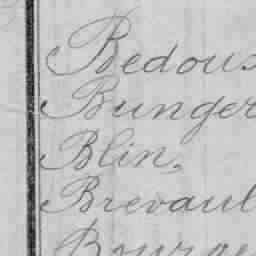 Bedous
Bunger
Blin,
Brevaul
Bourge